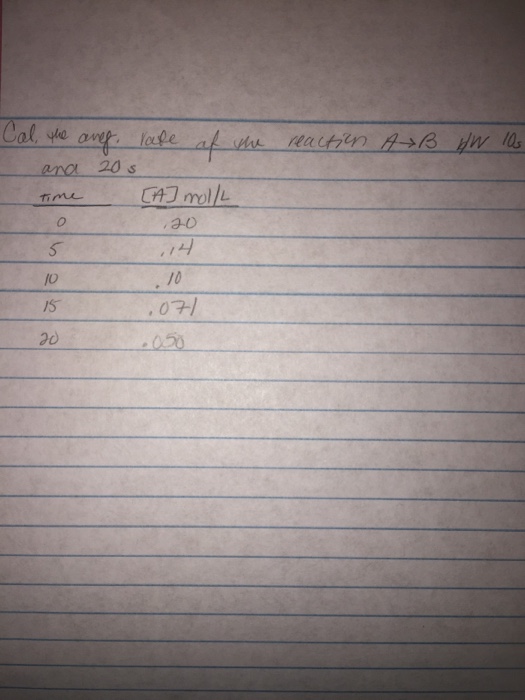 Cal. the aveg. rate of the reaction A→B b/w 10s
and 20 s
time [A] mol/L
0 .20
5 .14
10 .10
15 .071
20 .050